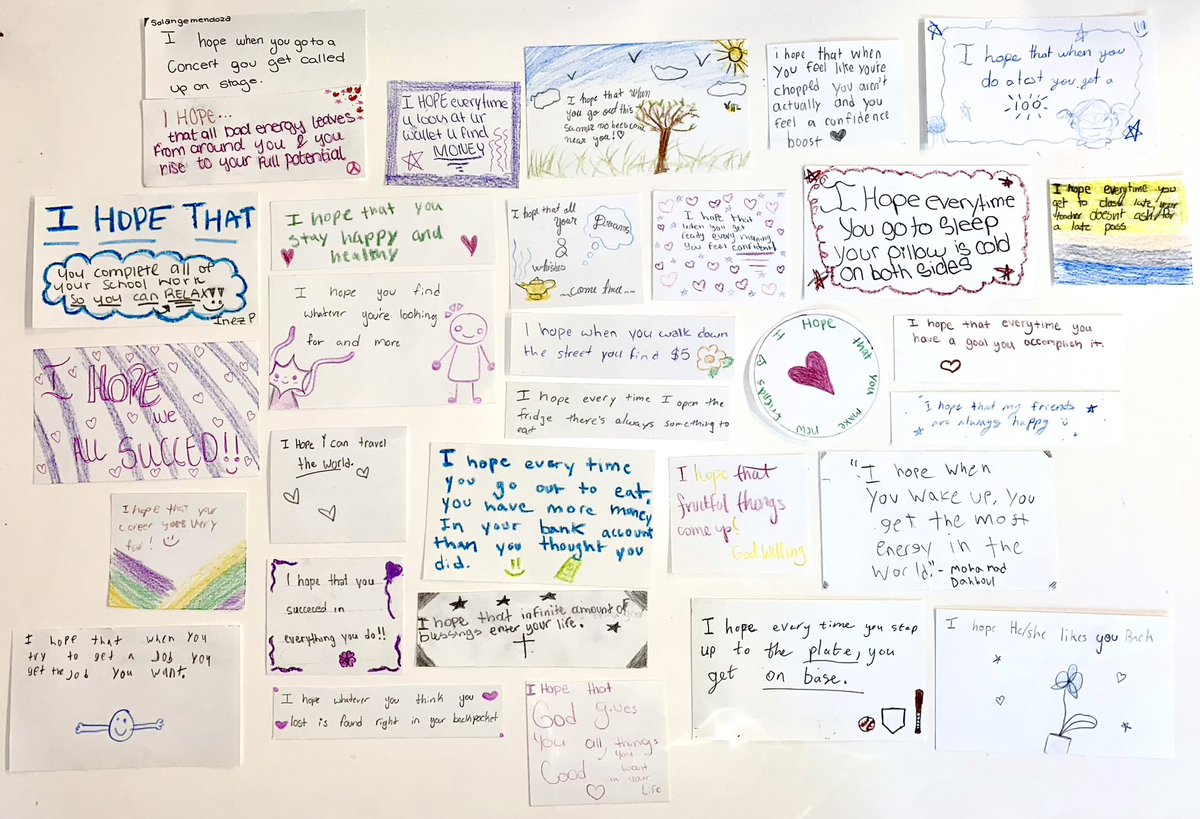 Solange mendoza
I hope when you go to a
Concert you get called
up on stage.
I HOPE...
that all bad energy leaves
from around you & you
rise to your full potential
I HOPE everytime
u look at ur
wallet u find
MONEY
I hope that when
you go out this
summer no bees come
near you!
i hope that when
you feel like you're
chopped you aren't
actually and you
feel a confidence
boost
I hope that when you
do a test you get a
100
I HOPE THAT
you complete all of
your school work
SO YOU CAN RELAX!!
Inez P
I hope that you
stay happy and
healthy
I hope that all
your Dreams
&
whishes
~come true~
I hope that
when you get
ready every morning
you feel confident
I Hope everytime
You go to sleep
your pillow is cold
on both sides
I hope everytime you
get to class late, your
teacher doesnt ask for
a late pass
I hope you find
whatever you're looking
for and more
I hope when you walk down
the street you find $5
I HOPE that you make new friends
I hope that everytime you
have a goal you accomplish it.
I HOPE
we
ALL SUCCED!!
I hope every time I open the
fridge there's always something to
eat
"I hope that my friends
are always happy
I Hope I can travel
the world.
I hope every time
you go out to eat,
you have more money
In your bank account
than you thought you
did.
I hope that
fruitful things
come up!
God Willing
"I hope when
you wake up, you
get the most
energy in the
World."-
Mohamad
Dahboul
I hope that your
career goes very
far!
I hope that you
succeed in
everything you do!!
I hope that infinite amount of
blessings enter your life.
I hope that when you
try to get a Job you
get the Job you want.
I hope whatever you think you
lost is found right in your backpocket
I Hope that
God gives
You all, things
Good
You
want
in Your
Life
I hope every time you step
up to the plate, you
get on base.
I hope He/she likes you Back